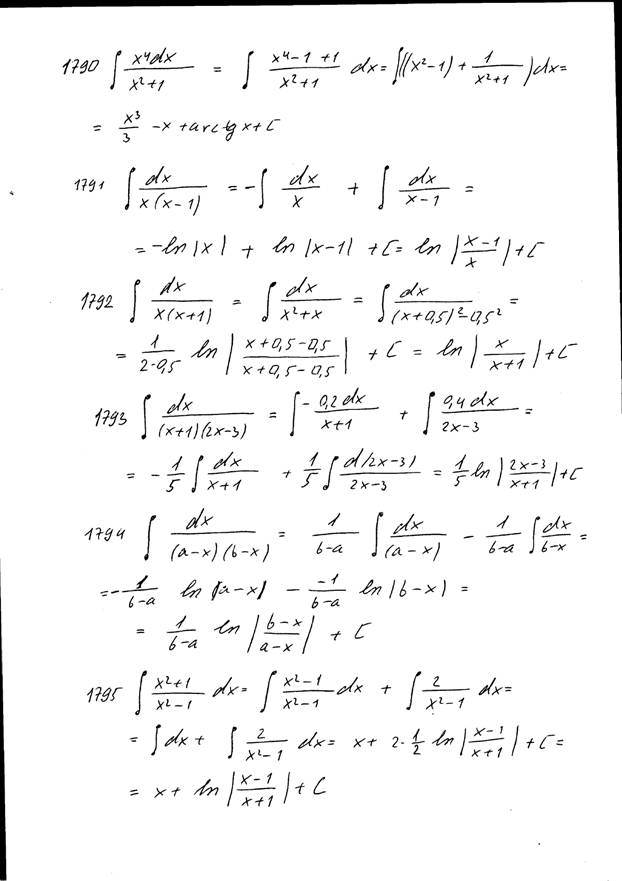 1790 ∫ x⁴dx/(x²+1) = ∫ (x⁴-1+1)/(x²+1) dx = ∫((x²-1) + 1/(x²+1))dx =
= x³/3 -x + arctg x + C
1791 ∫ dx/(x(x-1)) = -∫ dx/x + ∫ dx/(x-1) =
= -ln|x| + ln|x-1| + C = ln|(x-1)/x| + C
1792 ∫ dx/(x(x+1)) = ∫ dx/(x²+x) = ∫ dx/((x+0,5)²-0,5²) =
= 1/(2·0,5) ln|(x+0,5-0,5)/(x+0,5-0,5)| + C = ln|x/(x+1)| + C
1793 ∫ dx/((x+1)(2x-3)) = ∫ -0,2dx/(x+1) + ∫ 0,4dx/(2x-3) =
= -1/5 ∫ dx/(x+1) + 1/5 ∫ d(2x-3)/(2x-3) = 1/5 ln|(2x-3)/(x+1)| + C
1794 ∫ dx/((a-x)(b-x)) = 1/(b-a) ∫ dx/(a-x) - 1/(b-a) ∫ dx/(b-x) =
= -1/(b-a) ln|a-x| - (-1)/(b-a) ln|b-x| =
= 1/(b-a) ln|(b-x)/(a-x)| + C
1795 ∫ (x²+1)/(x²-1) dx = ∫ (x²-1)/(x²-1) dx + ∫ 2/(x²-1) dx =
= ∫dx + ∫ 2/(x²-1) dx = x + 2·1/2 ln|(x-1)/(x+1)| + C =
= x + ln|(x-1)/(x+1)| + C